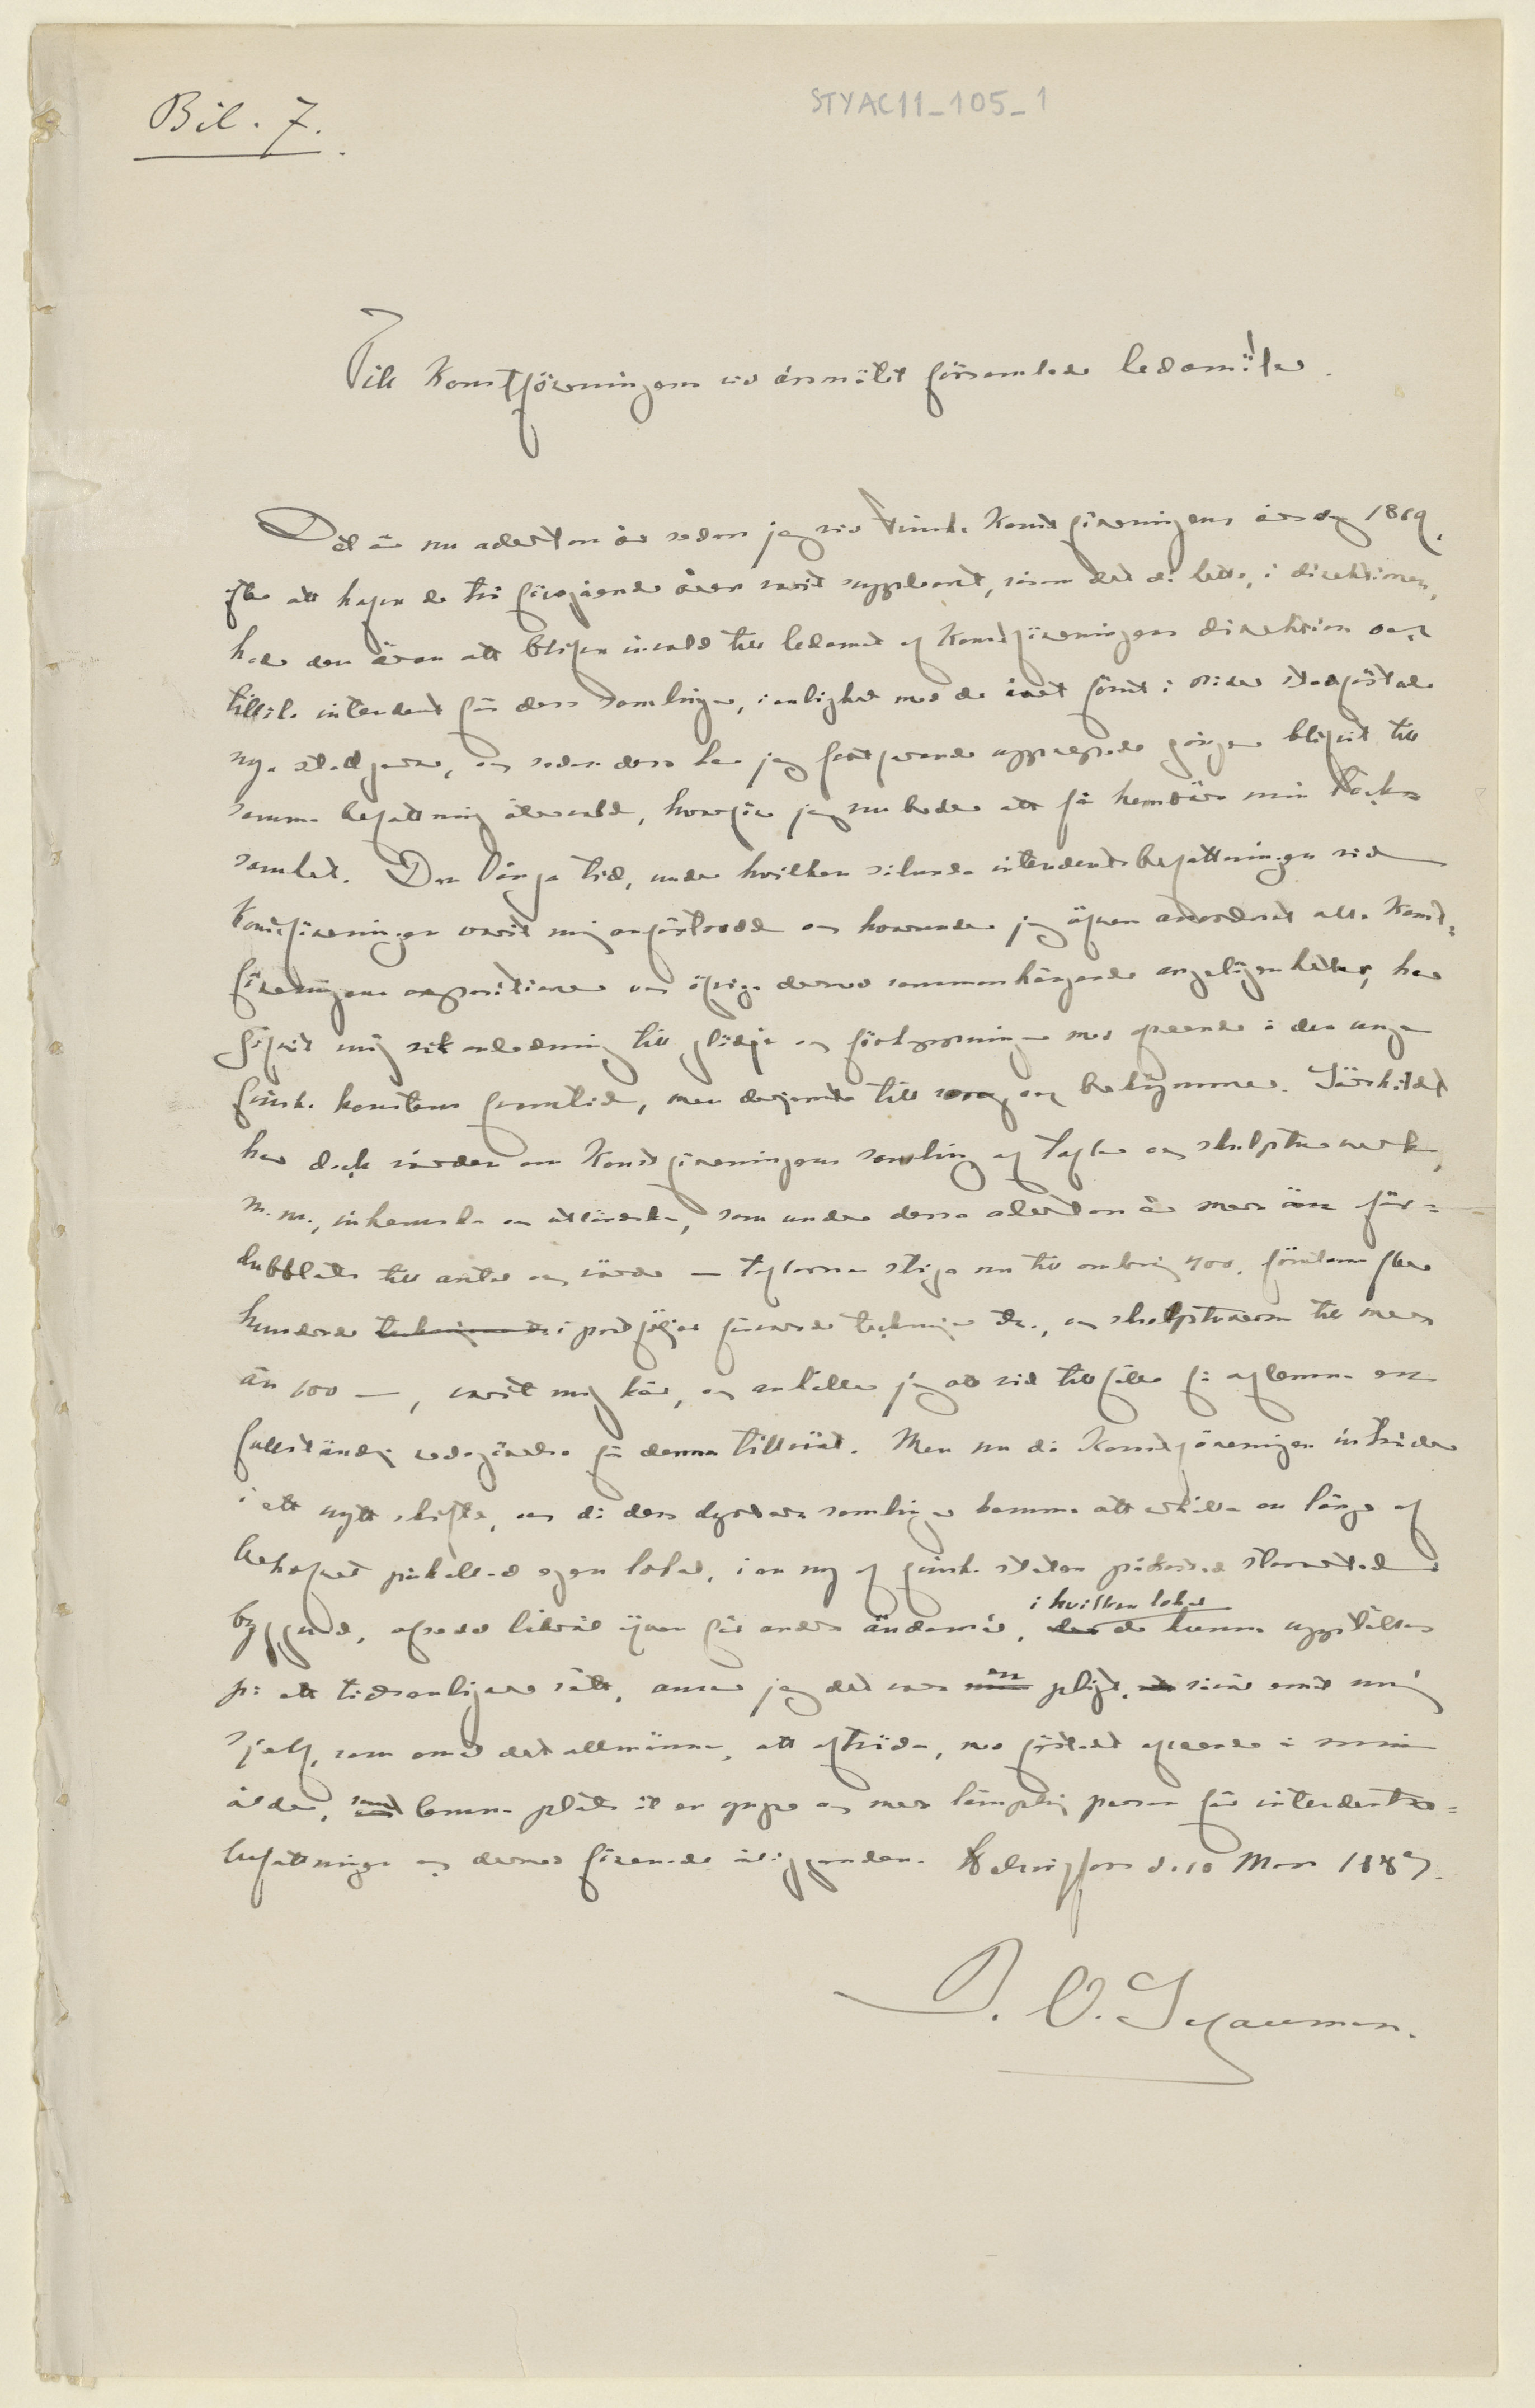 Bil. 7.
STYAC11_105_1
Till Konstföreningens vid årsmötet församlade ledamöter.
Det är nu aderton år sedan jag vid Finska Konstföreningens årsdag 1869,
efter att hafva de två föregående åren varit suppleant, såsom det då hette, i direktionen,
hade den äran att blifva invald till ledamot af Konstföreningens direktion och
tillika intendent för dess samlingar, i enlighet med de året förut i sådan stadfästade
nya stadgarne, och sedan dess har jag fortfarande upprepade gånger blifvit till
samma befattning återvald, hvarför jag nu beder att få hembära min tack-
samhet. Den långa tid, under hvilken sålunda intendentsbefattningen vid
Konstföreningen varit mig anförtrodd och hvarunder jag äfven anordnat alla Konst-
föreningens expositioner och öfriga dermed sammanhängande angelägenheter, har
gifvit mig rik anledning till glädje och förhoppningar med afseende å den unga
finska konstens framtid, men derjemte till sorg och bekymmer. Särskildt
har dock vården om Konstföreningens samling af taflor och skulpturverk,
m. m., inhemska och utländska, som under dessa aderton år mer än för-
dubblats till antal och värde — taflorna stiga nu till omkring 400, förutom flere
hundrade teckningar i portföljer förvarade teckningar etc., och skulpturerna till mer
än 100 —, varit mig kär, och anhåller jag att vid tillfälle få aflemna en
fullständig redogörelse för denna tillväxt. Men nu då Konstföreningen inträder
i ett nytt skifte, och då dess dyrbara samlingar komma att erhålla en länge af
behofvet påkallad egen lokal, i en ny af finska staten påkostad storartad
byggnad, afsedd likväl äfven för andra ändamål, i hvilken lokal de kunna uppställas
på ett tidsenligare sätt, anser jag det vara en pligt, såväl emot mig
sjelf, som emot det allmänna, att afträda, med fästadt afseende å min
ålder, samt lemna plats åt en yngre och mer lämplig person för intendents-
befattningen och dermed förenade åligganden. Helsingfors d. 10 Mars 1887.
B. O. Schauman.